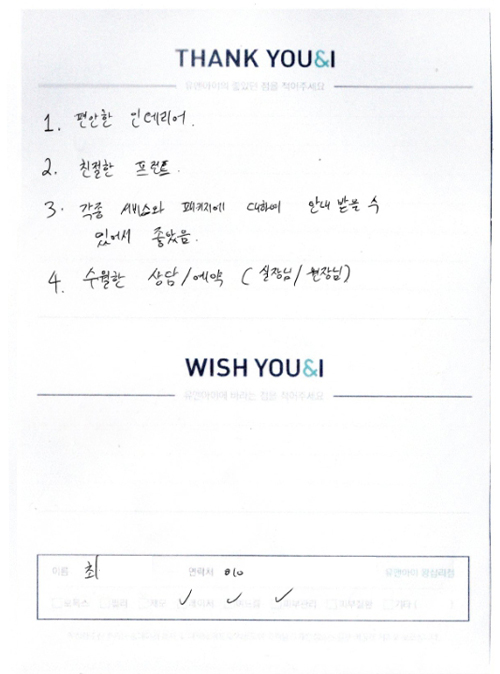 THANK YOU&I
유앤아이의 좋았던 점을 적어주세요
1. 편안한 인테리어.
2. 친절한 프런트.
3. 각종 서비스와 패키지에 대하여 안내 받을 수
있어서 좋았음.
4. 수월한 상담/예약 (실장님/원장님)
WISH YOU&I
유앤아이에 바라는 점을 적어주세요
이름 최 연락처 010 유앤아이 왕십리점
보톡스 필러 제모 레이저 피부관리 피부질환 기타 ( )